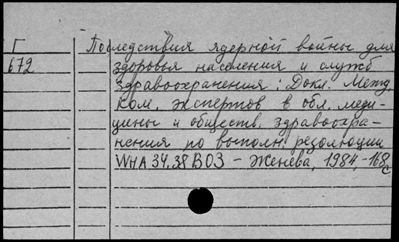 Г Последствия ядерной войны для
672 здоровья населения и служб
здравоохранения: Докл. Межд
ком. экспертов в обл. меди-
цины и обществ. здравоохра-
нения по выполн. резолюции
WHA 34.38 ВОЗ – Женева, 1984, -168с